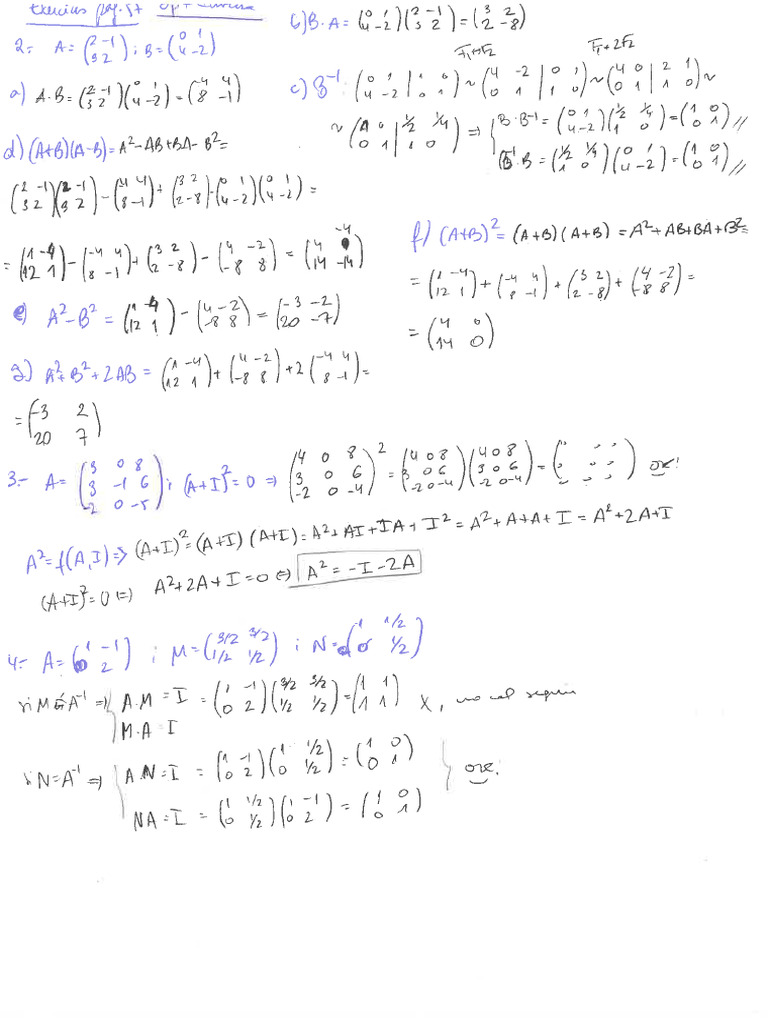 pag. 57
2= A=(2 -1; 3 2) ; B=(0 1; 4 -2)
a) A·B=(2 -1; 3 2)(0 1; 4 -2)=(-4 4; 8 -1)
b) B·A=(0 1; 4 -2)(2 -1; 3 2)=(3 2; 2 -8)
F1↔F2 F1+2F2
c) B^-1: (0 1 | 1 0; 4 -2 | 0 1) ~ (4 -2 | 0 1; 0 1 | 1 0) ~ (4 0 | 2 1; 0 1 | 1 0) ~
~ (1 0 | 1/2 1/4; 0 1 | 1 0) => { B·B^-1=(0 1; 4 -2)(1/2 1/4; 1 0)=(1 0; 0 1) //
B^-1·B=(1/2 1/4; 1 0)(0 1; 4 -2)=(1 0; 0 1) //
d) (A+B)(A-B)=A²-AB+BA-B²=
(2 -1; 3 2)(2 -1; 3 2)-(-4 4; 8 -1)+(3 2; 2 -8)-(0 1; 4 -2)(0 1; 4 -2)=
=(1 -4; 12 1)-(-4 4; 8 -1)+(3 2; 2 -8)-(4 -2; -8 8)=(4 -4; 14 -14)
e) A²-B²=(1 -4; 12 1)-(4 -2; -8 8)=(-3 -2; 20 -7)
f) (A+B)²=(A+B)(A+B)=A²+AB+BA+B²=
=(1 -4; 12 1)+(-4 4; 8 -1)+(3 2; 2 -8)+(4 -2; -8 8)=
=(4 0; 14 0)
g) A²+B²+2AB=(1 -4; 12 1)+(4 -2; -8 8)+2(-4 4; 8 -1)=
=(-3 2; 20 7)
3.- A=(3 0 8; 3 -1 6; -2 0 -5) ; (A+I)²=0 => (4 0 8; 3 0 6; -2 0 -4)²=(4 0 8; 3 0 6; -2 0 -4)(4 0 8; 3 0 6; -2 0 -4)=
A²=f(A,I)=>(A+I)²=(A+I)(A+I)=A²+AI+IA+I²=A²+A+A+I=A²+2A+I
(A+I)²=0 <=> A²+2A+I=0 <=> A²=-I-2A
4.- A=(1 -1; 0 2) ; M=(3/2 3/2; 1/2 1/2) ; N=(1 1/2; 0 1/2)
si M és A^-1 => { A·M=I=(1 -1; 0 2)(3/2 3/2; 1/2 1/2)=(1 1; 1 1) X, no cal seguir
M·A=I
si N=A^-1 => { A·N=I=(1 -1; 0 2)(1 1/2; 0 1/2)=(1 0; 0 1)
NA=I=(1 1/2; 0 1/2)(1 -1; 0 2)=(1 0; 0 1)